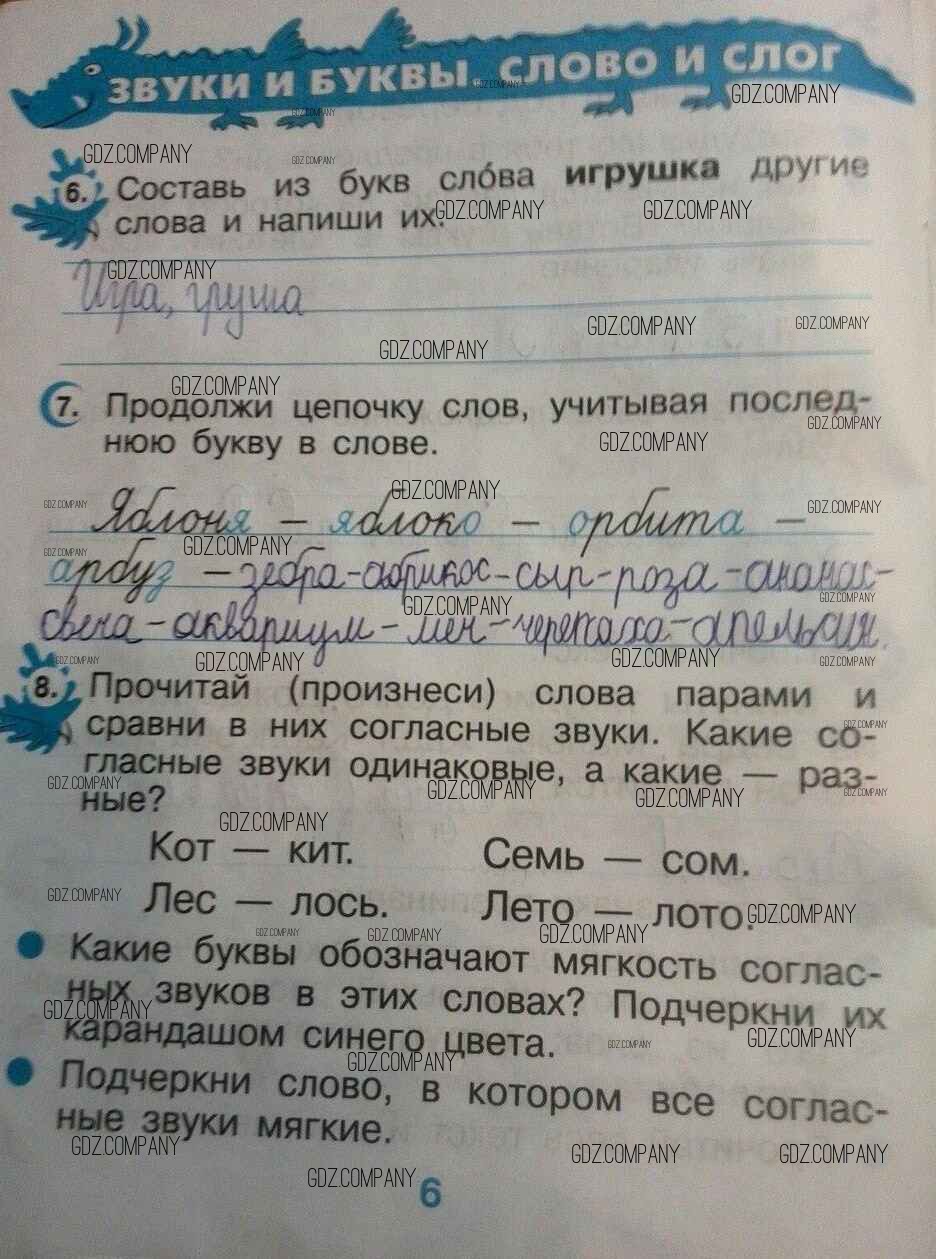 ЗВУКИ И БУКВЫ. СЛОВО И СЛОГ
GDZ.COMPANY
6. Составь из букв сло́ва игрушка другие
слова и напиши их.
Игра, груша
7. Продолжи цепочку слов, учитывая послед-
нюю букву в слове.
Яблоня – яблоко – орбита –
арбуз – зебра-абрикос-сыр-роза-ананас-
свеча-аквариум-меч-черепаха-апельсин.
8. Прочитай (произнеси) слова парами и
сравни в них согласные звуки. Какие со-
гласные звуки одинаковые, а какие — раз-
ные?
Кот — кит. Семь — сом.
Лес — лось. Лето — лото.
Какие буквы обозначают мягкость соглас-
ных звуков в этих словах? Подчеркни их
карандашом синего цвета.
Подчеркни слово, в котором все соглас-
ные звуки мягкие.
6